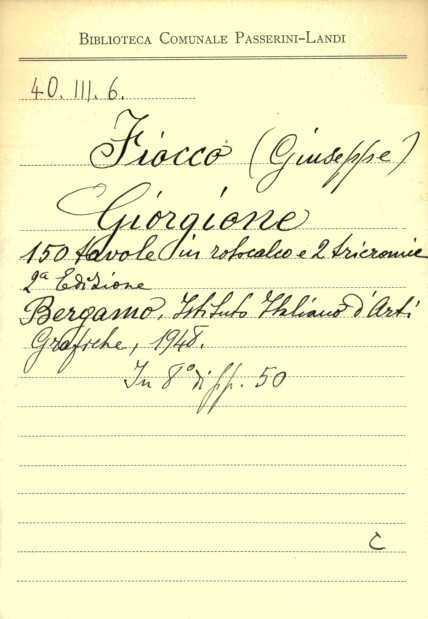 BIBLIOTECA COMUNALE PASSERINI-LANDI
40. III. 6.
Fiocco (Giuseppe)
Giorgione
150 tavole in rotocalco e 2 tricromie
2ª Edizione
Bergamo, Istituto Italiano d'Arti
Grafiche, 1948.
In 8° di pp. 50
C